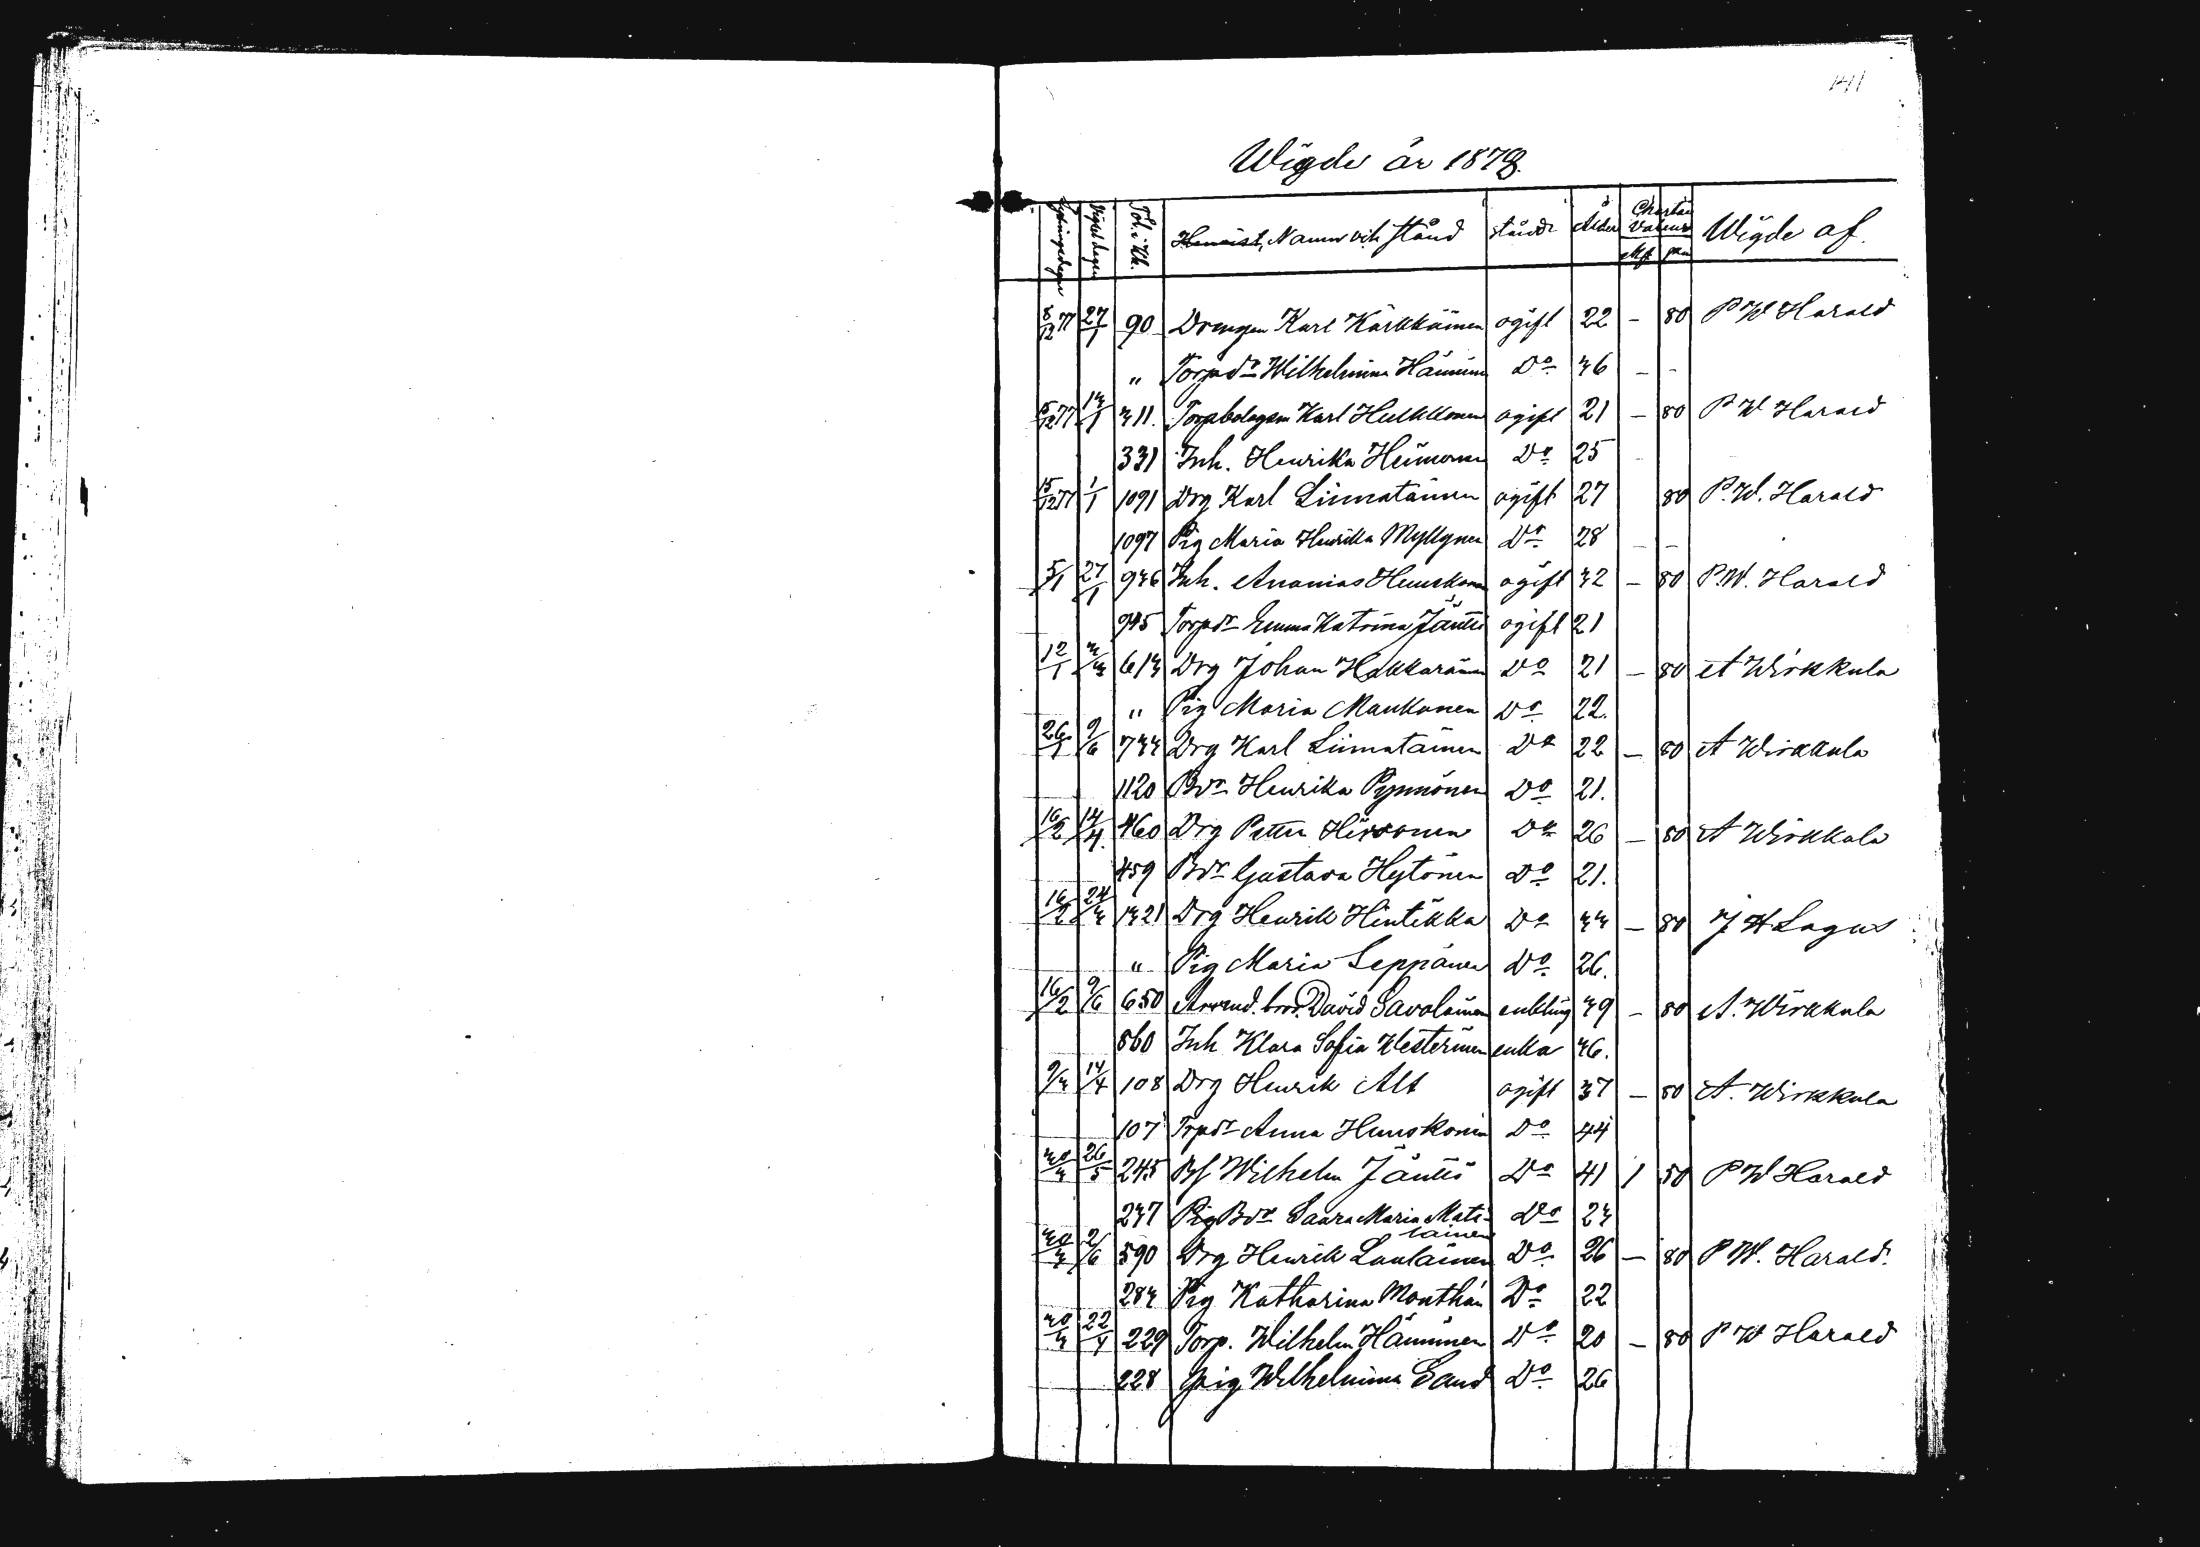 141
Wigde år 1878.
Lysningsdagen Vigseldagen Fol. i Kb. Hemvist, Namn och stånd stånd Ålder Chartæ Valeur Wigde af.
mk pen
8/12 77 27/1 90 Drengen Karl Kärkkäinen ogift 22 – 80 P W Harald
" Torpdr Wilhelmina Hänninen Do 36 – –
15/12 77 13/1 311. Torpbolagsm Karl Hulkkonen ogift 21 – 80 P W Harald
331 Inh. Henrika Heimonen Do 25
15/12 77 1/1 1091 Drg Karl Liimatainen ogift 27 80 P. W. Harald
1097 Pig Maria Henrika Myllynen Do 28 – –
5/1 27/1 936 Inh. Ananias Huuskonen ogift 32 – 80 P. W. Harald
945 Torpdr Emma Katrina Jäntti ogift 21
12/1 3/3 613 Drg Johan Hakkarainen Do 21 – 80 A Wirkkula
" Pig Maria Maukonen Do 22.
26/1 9/6 733 Drg Karl Liimatainen Do 22 – 80 A Wirkkula
1120 Bdr Henrika Pynnönen Do 21.
16/2 14/4. 460 Drg Petter Hirvonen Do 26 – 80 A Wirkkula
459 Bdr Gustava Hytönen Do 21.
16/2 24/3 1321 Drg Henrik Hintikka Do 33 – 80 J H Lagus
" Pig Maria Seppänen Do 26.
16/2 9/6 650 Arrend. bror. David Savolainen enkling 39 – 80 A. Wirkkula
860 Inh Klara Sofia Westerinen enka 36.
9/3 14/4 108 Drg Henrik Alt ogift 37 – 80 A. Wirkkula
107 Trpdr Anna Huuskonen Do 44
30/3 26/5 245 Bf Wilhelm Jäntti Do 41 1 50 P W Harald
237 Pig Bdr Saara Maria Mati-
lainen Do 23
30/3 2/6 590 Drg Henrik Laulainen Do 26 – 80 P W. Harald.
283 Pig Katharina Monthán Do 22
30/3 22/4 229 Torp. Wilhelm Hänninen Do 20 – 80 P W Harald
228 pig Wilhelmina Sand Do 26